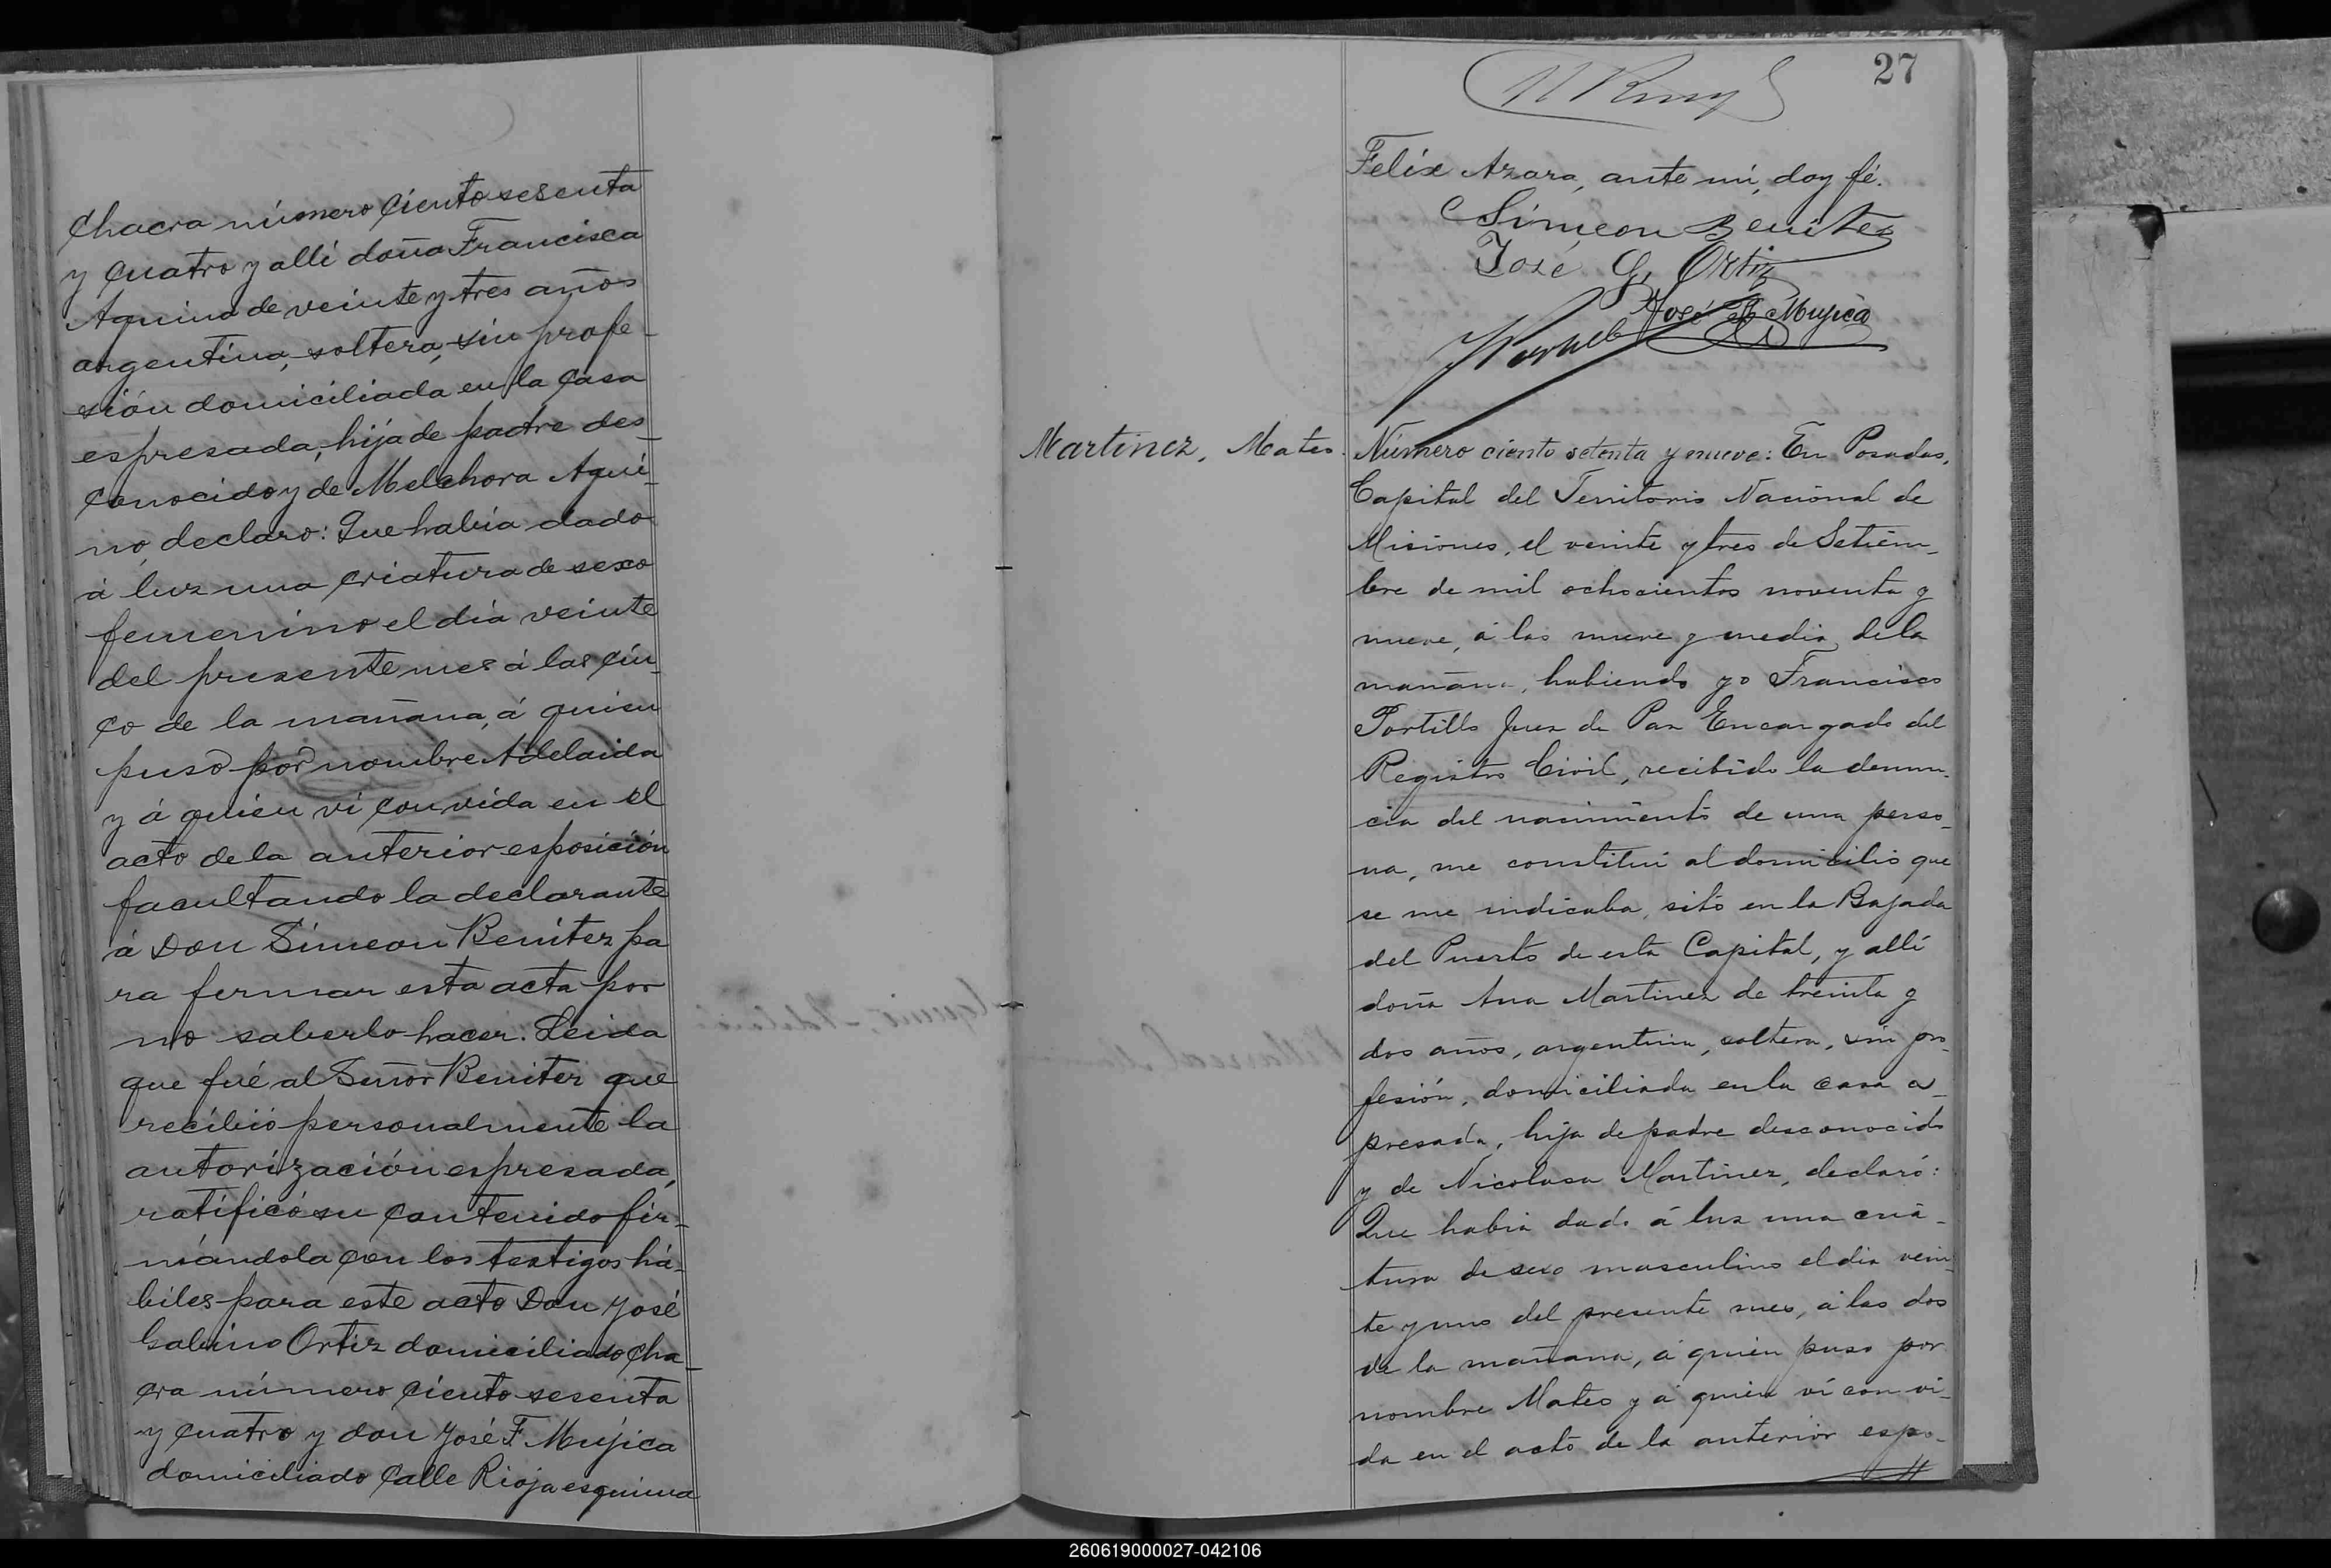 Chacra número ciento sesenta
y cuatro y allí doña Francisca
Aquino de veinte y tres años
argentina, soltera, sin profe-
sión domiciliada en la casa
espresada, hija de padre des-
conocido y de Melchora Aqui-
no, declaro: Que habia dado
á luz una criatura de sexo
femenino el dia veinte
del presente mes á las cin-
co de la mañana, á quien
puso por nombre Adelaida
y á quien vi con vida en el
acto de la anterior esposición
facultando la declarante
á Don Simeon Benitez pa
ra fermar esta acta por
no saberlo hacer. Leida
que fué al Señor Beniter que
recibió personalmente la
autorización espresada,
ratificó su contenido fir-
mándola con los testigos há-
biles para este acto Don José
Gabino Ortiz domiciliado Cha-
cra número ciento sesenta
y cuatro y don José F. Mujica
domiciliado Calle Rioja esquina
27
Felix Azara, ante mi, doy fé.
Simeon Benitez
José G. Ortiz
José F. Mujica
Martinez, Mateo.
Número ciento setenta y nueve: En Posadas,
Capital del Territorio Nacional de
Misiones, el veinte y tres de Setiem-
bre de mil ochocientos noventa y
nueve, á las nueve y media de la
mañana, habiendo yo Francisco
Portillo Juez de Paz Encargado del
Registro Civil, recibido la denun-
cia del nacimiento de una perso-
na, me constitui al domicilio que
se me indicaba, sito en la Bajada
del Puerto de esta Capital, y allí
doña Ana Martinez de treinta y
dos años, argentina, soltera, sin pro-
fesión, domiciliada en la casa es-
presada, hija de padre desconocido
y de Nicolasa Martinez, declaró:
Que habia dado á luz una cria-
tura de sexo masculino el dia vein-
te y uno del presente mes, á las dos
de la mañana, á quien puso por
nombre Mateo y á quien ví con vi-
da en el acto de la anterior espo-
260619000027-042106